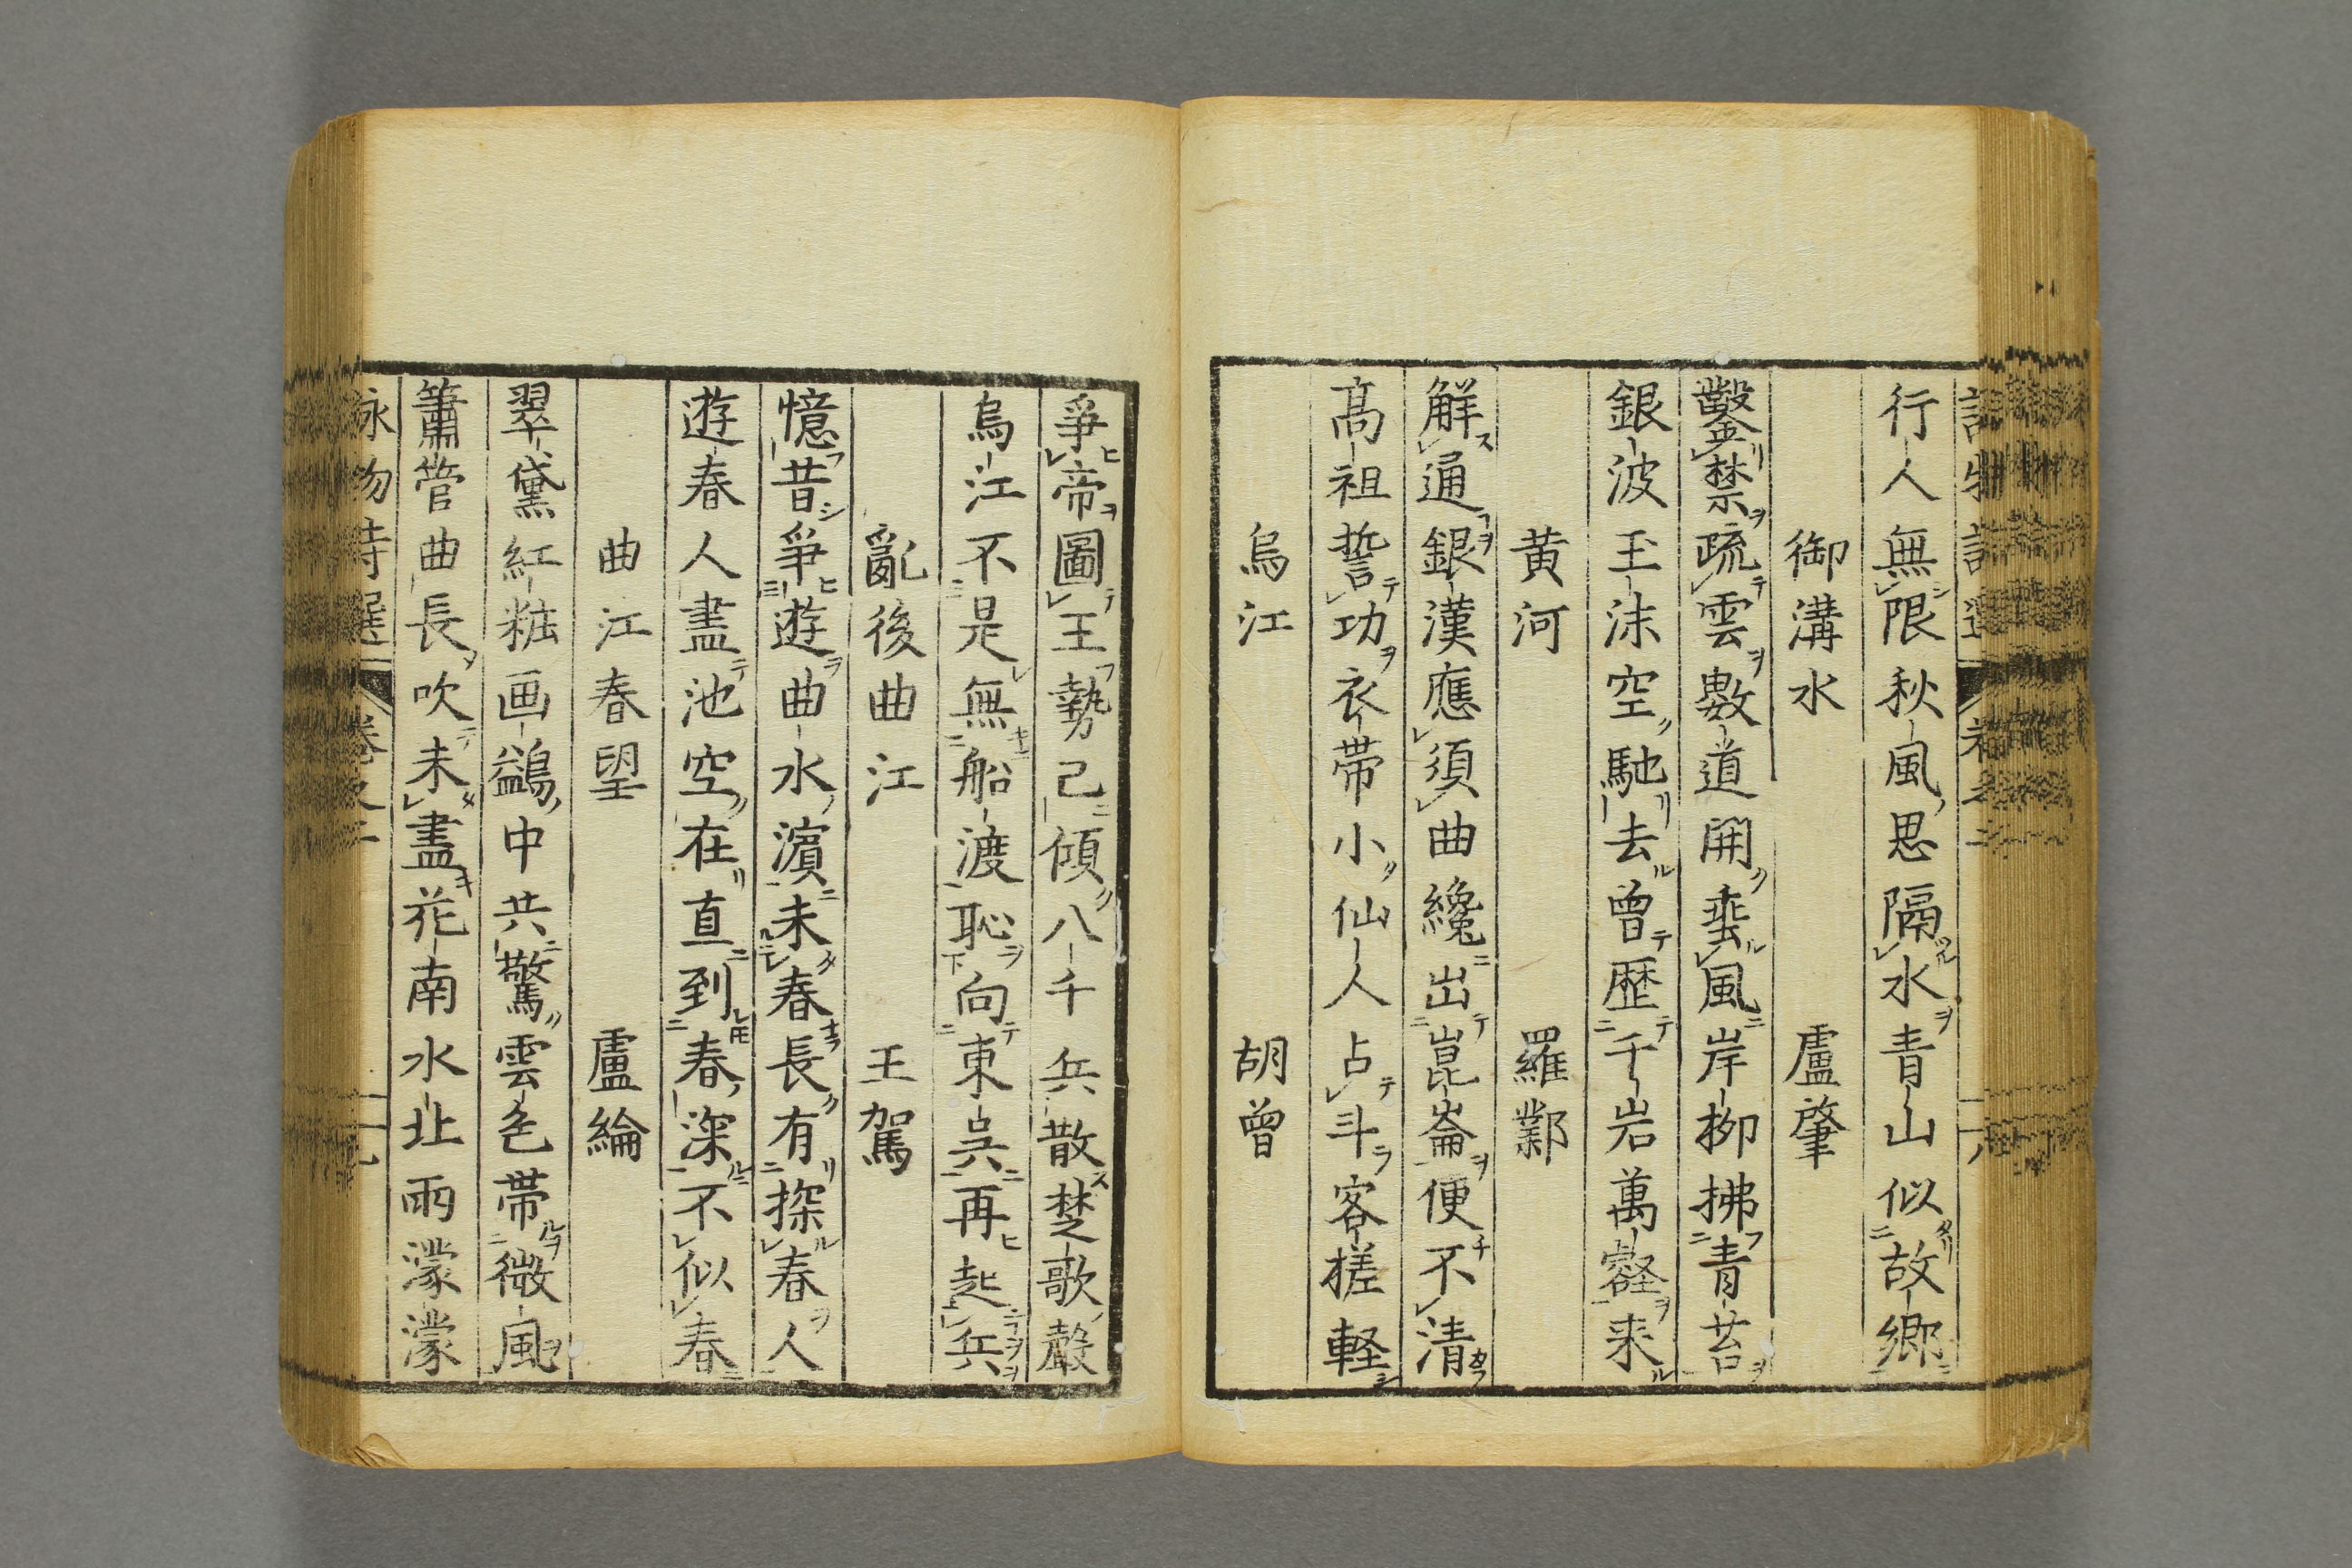 行人無限秋風思隔水青山似故鄉
御溝水　盧肇
鑿禁疏雲數道開垂風岸柳拂青苔
銀波玉沫空馳去曾歴千岩萬壑来
黄河　羅鄴
解通銀漢應須曲纔出崑崙便不清
高祖誓功衣帯小仙人占斗客槎軽
烏江　胡曾
爭帝圖王勢已傾八千兵散楚歌聲
烏江不是無船渡恥向東吳再起兵
亂後曲江　王駕
憶昔爭遊曲水濵未春長有探春人
遊春人盡池空在直到春深不似春
曲江春望　盧綸
翠黛紅粧画鷁中共驚雲色帯微風
簫管曲長吹未盡花南水北雨濛濛
詠物詩選　卷之二